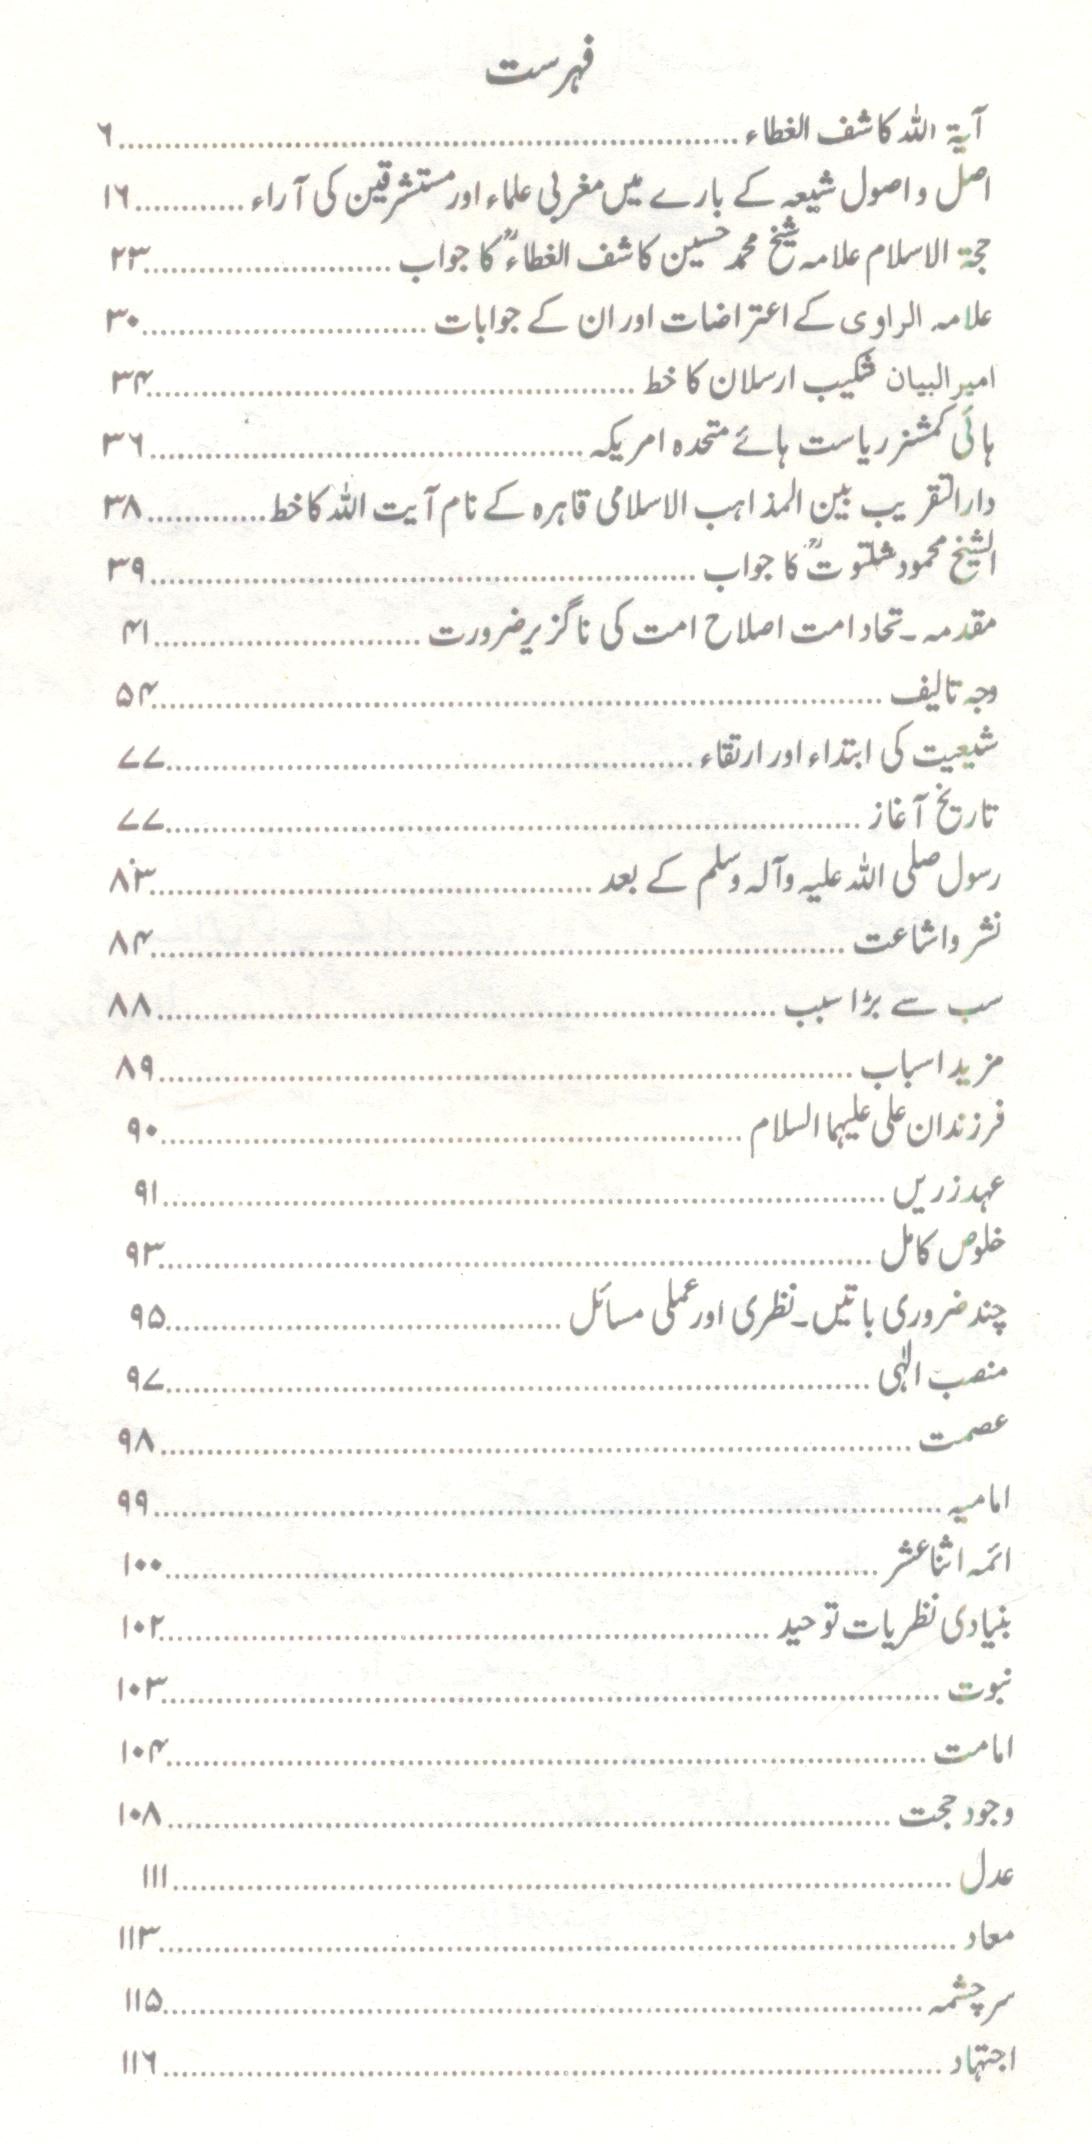 فہرست
آیۃ اللہ کاشف الغطاء ........ ۶
اصل و اصول شیعہ کے بارے میں مغربی علماء اور مستشرقین کی آراء ........ ۱۶
حجۃ الاسلام علامہ شیخ محمد حسین کاشف الغطاءؒ کا جواب ........ ۲۳
علامہ الراوی کے اعتراضات اور ان کے جوابات ........ ۳۰
امیر البیان شکیب ارسلان کا خط ........ ۳۴
ہائی کمشنر ریاست ہائے متحدہ امریکہ ........ ۳۶
دارالتقریب بین المذاہب الاسلامی قاہرہ کے نام آیت اللہ کا خط ........ ۳۸
الشیخ محمود شلتوتؒ کا جواب ........ ۳۹
مقدمہ۔تحاد امت اصلاح امت کی ناگزیر ضرورت ........ ۴۱
وجہ تالیف ........ ۵۴
شیعیت کی ابتداء اور ارتقاء ........ ۷۷
تاریخ آغاز ........ ۷۷
رسول صلی اللہ علیہ وآلہ وسلم کے بعد ........ ۸۳
نشر واشاعت ........ ۸۴
سب سے بڑا سبب ........ ۸۸
مزید اسباب ........ ۸۹
فرزندان علی علیہما السلام ........ ۹۰
عہد زریں ........ ۹۱
خلوص کامل ........ ۹۳
چند ضروری باتیں۔نظری اور عملی مسائل ........ ۹۵
منصب الٰہی ........ ۹۷
عصمت ........ ۹۸
امامیہ ........ ۹۹
ائمہ اثنا عشر ........ ۱۰۰
بنیادی نظریات توحید ........ ۱۰۲
نبوت ........ ۱۰۳
امامت ........ ۱۰۴
وجود حجت ........ ۱۰۸
عدل ........ ۱۱۱
معاد ........ ۱۱۳
سرچشمہ ........ ۱۱۵
اجتہاد ........ ۱۱۶